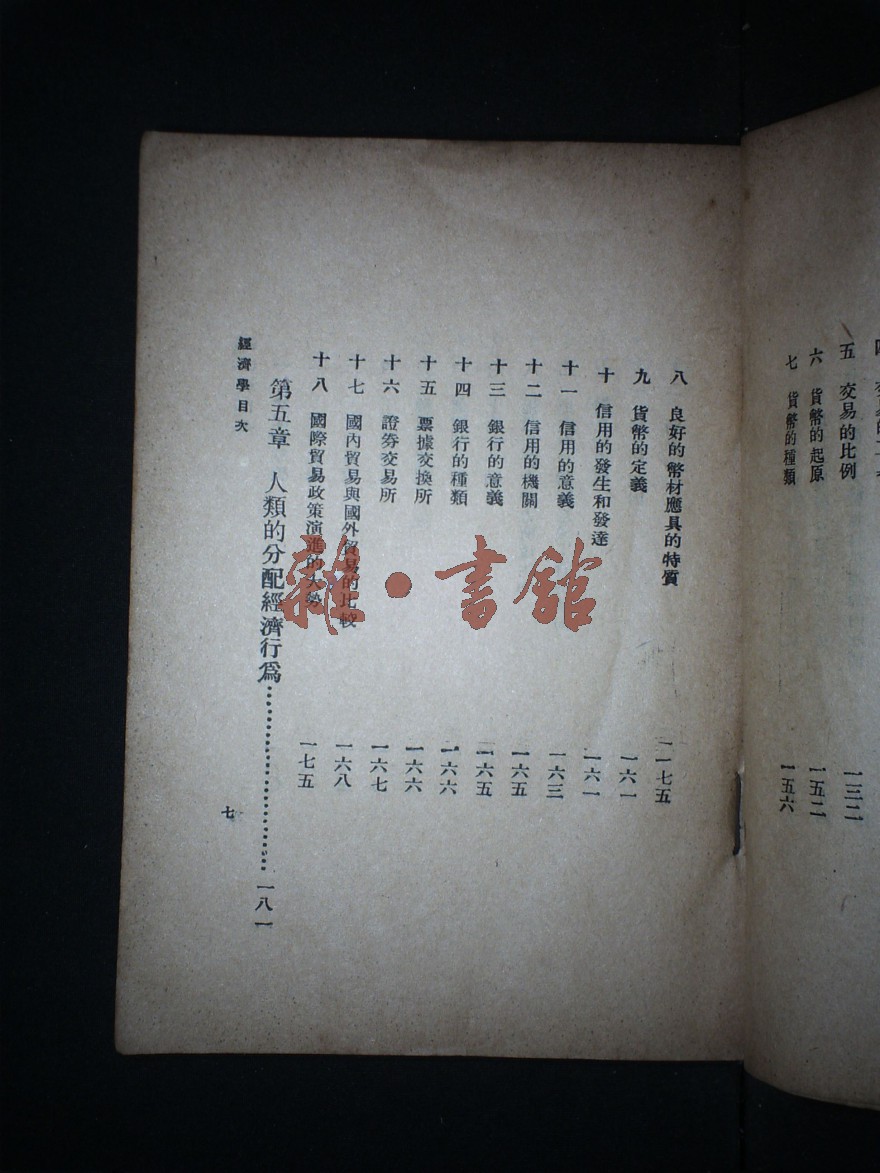 五 交易的比例 一三二
六 貨幣的起原 一五二
七 貨幣的種類 一五六
八 良好的幣材應具的特質 一一七五
九 貨幣的定義 一六一
十 信用的發生和發達 一六一
十一 信用的意義 一六三
十二 信用的機關 一六五
十三 銀行的意義 一六五
十四 銀行的種類 一六六
十五 票據交換所 一六六
十六 證券交易所 一六七
十七 國內貿易與國外貿易的比較 一六八
十八 國際貿易政策演進的大勢 一七五
第五章 人類的分配經濟行爲 一八一
經濟學目次 七
雜·書館